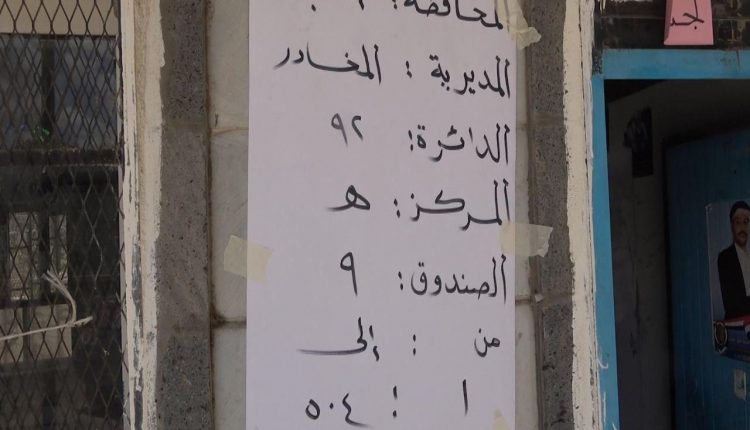 المحافظة:
المديرية: المخادر
الدائرة: ٩٢
المركز: هـ
الصندوق: ٩
من : إلى
١ : ٥٠٤